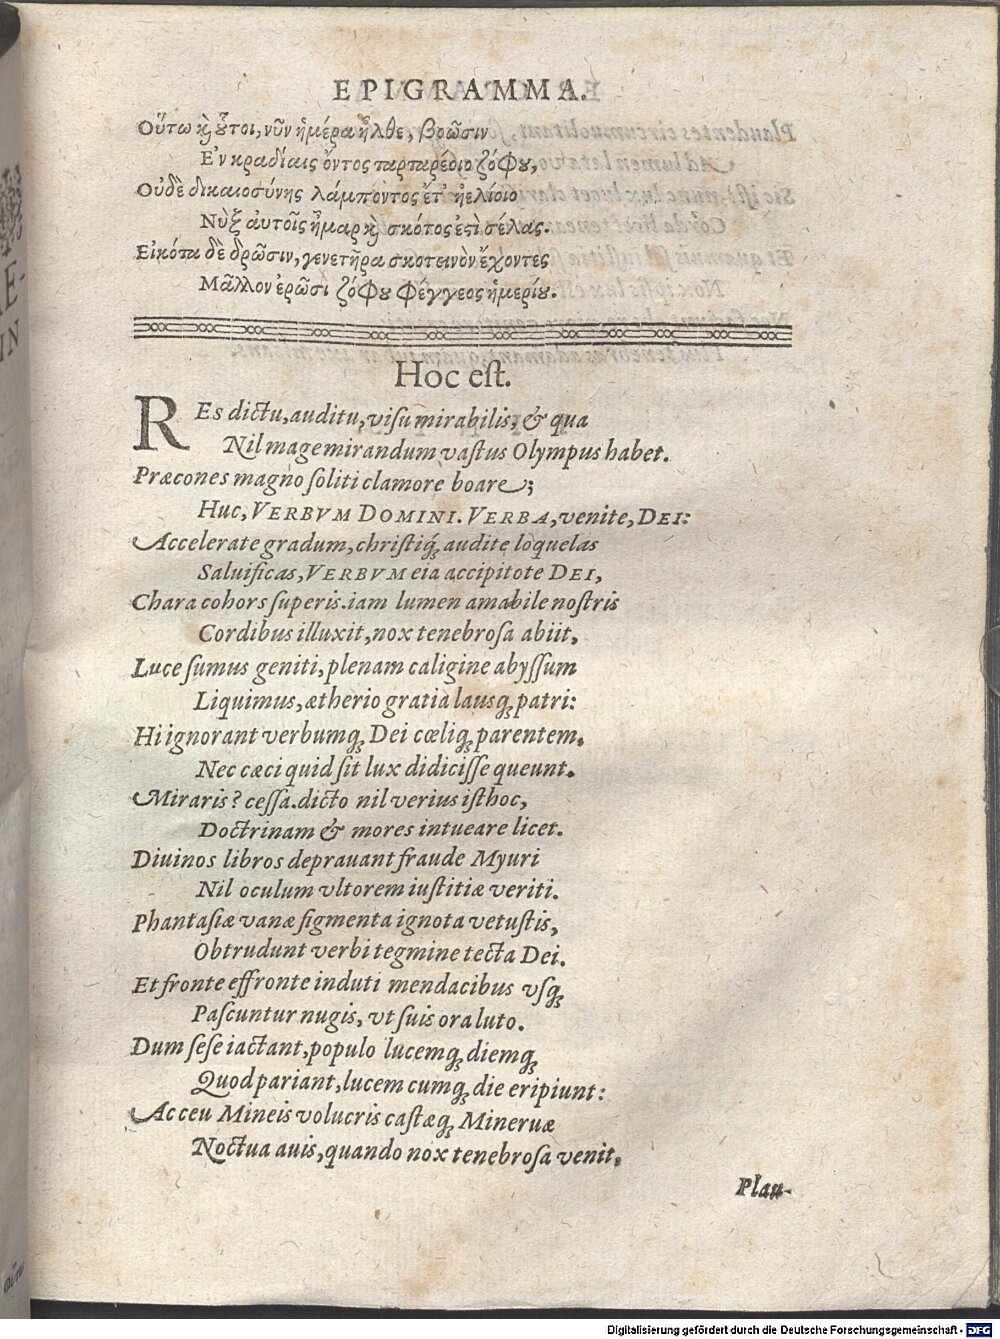 EPIGRAMMA.
Οὕτω ϗ ȣ̔τοι, νῦν ἡμέρα ἦλθε, βοῶσιν
Ἐν κραδίαις ὄντος ταρταρέοιο ζόφȣ,
Οὐδὲ δικαιοσύνης λάμποντος ἔτ' ἠελίοιο
Νὺξ ἀυτοῖς ἦμαρ ϗ σκότος ἐϛὶ σέλας.
Εἰκότα δὲ δρῶσιν, γενετῆρα σκοτεινὸν ἔχοντες
Μᾶλλον ἐρῶσι ζόφȣ φέγγεος ἡμερίȣ.
Hoc eſt.
REs dictu, auditu, viſu mirabilis, & qua
Nil mage mirandum vaſtus Olympus habet.
Præcones magno ſoliti clamore boare;
Huc, VERBVM DOMINI. VERBA, venite, DEI:
Accelerate gradum, chriſtiq́; audite loquelas
Saluificas, VERBVM eia accipitote DEI,
Chara cohors ſuperis. iam lumen amabile noſtris
Cordibus illuxit, nox tenebroſa abiit,
Luce ſumus geniti, plenam caligine abyſſum
Liquimus, ætherio gratia lausq́; patri:
Hi ignorant verbumq́; Dei cœliq́; parentem,
Nec cæci quid ſit lux didiciſſe queunt.
Miraris? ceſſa. dicto nil verius iſthoc,
Doctrinam & mores intueare licet.
Diuinos libros deprauant fraude Myuri
Nil oculum vltorem iuſtitiæ veriti.
Phantaſiæ vanæ figmenta ignota vetuſtis,
Obtrudunt verbi tegmine tecta Dei.
Et fronte effronte induti mendacibus vſq́;
Paſcuntur nugis, vt ſuis ora luto.
Dum ſeſe iactant, populo lucemq́; diemq́;
Quod pariant, lucem cumq́; die eripiunt:
Ac ceu Mineis volucris caſtæq́; Mineruæ
Noctua auis, quando nox tenebroſa venit,
Plau-
Digitalisierung gefördert durch die Deutsche Forschungsgemeinschaft - DFG